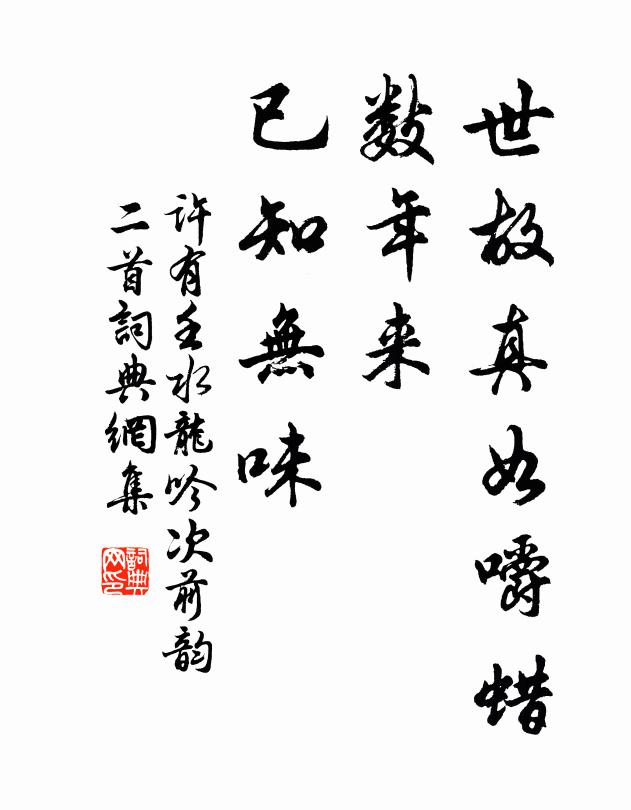 世故真如嚼蜡
数年来
已知無味
许有壬水龍吟次前韵
二首詞典網集
詞典网印